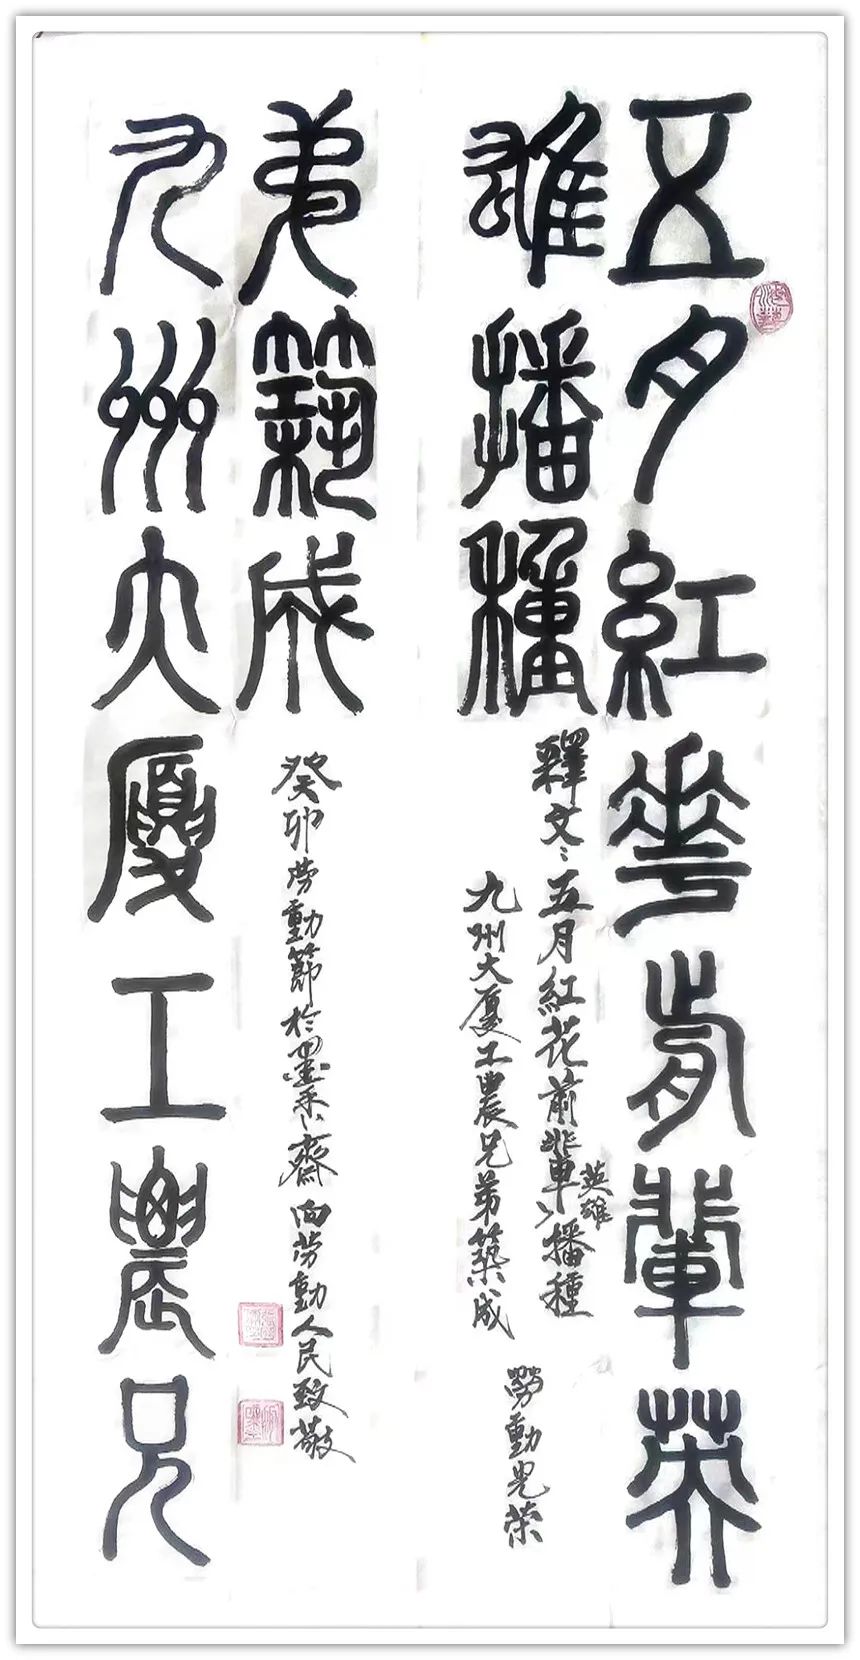 五月紅花前輩英
雄播種
釋文：五月紅花前輩播種
英雄
九州大厦工農兄弟築成
勞動光榮
九州大厦工農兄
弟築成
癸卯勞動節於墨齋向勞動人民致敬